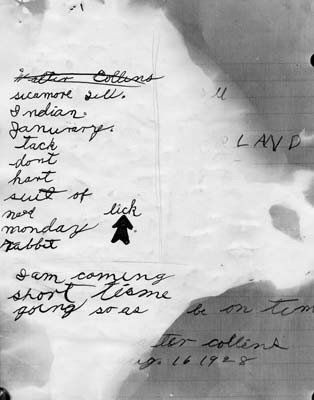 Walter Collins
sicamore Ill.
Indian.
Janurary.
LAND
tack
dont
hart
suit of
lick
monday
rabbit
I am coming
short tisme
going so as be on tim
ter collins
16 1928